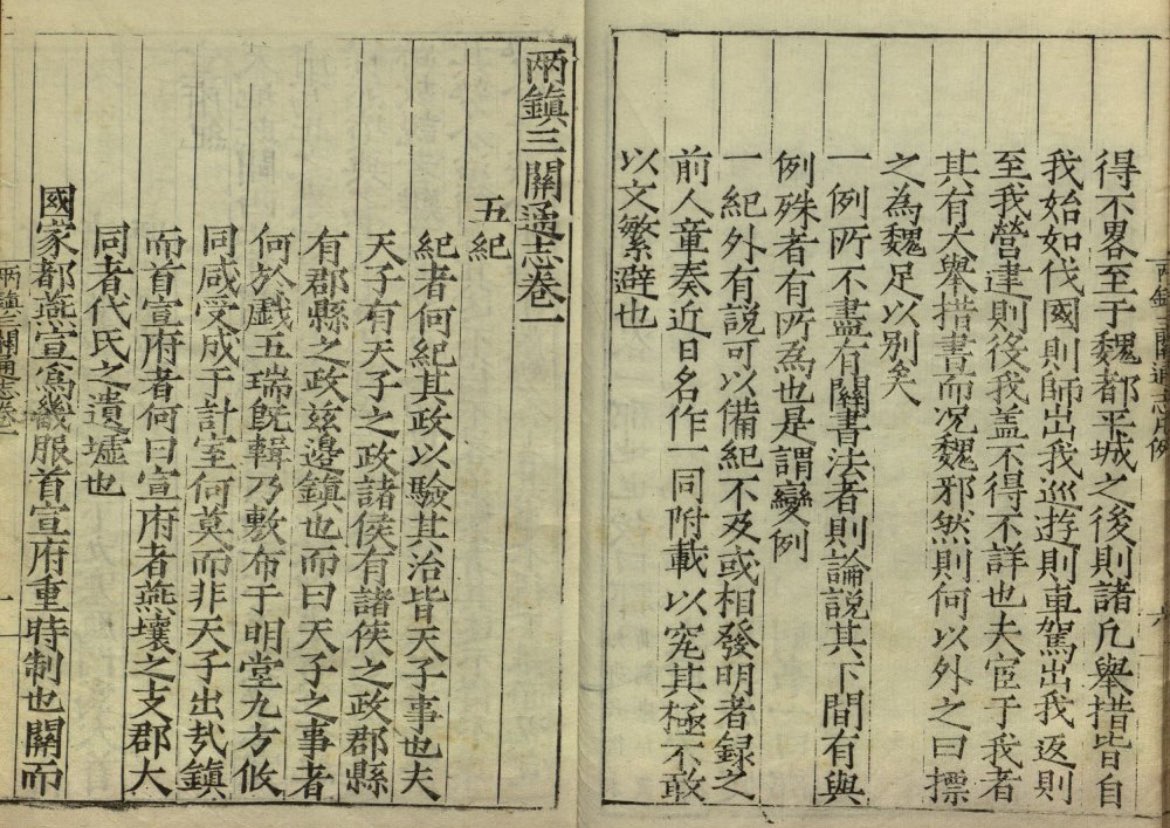 得不畧至于魏都平城之後則諸凡舉措皆自
我始如代國則師出我巡遊則車駕出我返則
至我營建則後我盖不得不詳也夫宦于我者
其有大舉措書而况魏邪然則何以外之曰摽
之為魏足以別矣
一例所不盡有關書法者則論說其下間有與
例殊者有所為也是謂變例
一紀外有說可以備紀不及或相發明者録之
前人章奏近日名作一同附載以究其極不敢
以文繁避也
兩鎮三關通志卷一
五紀
紀者何紀其政以驗其治皆天子事也夫
天子有天子之政諸侯有諸侯之政郡縣
有郡縣之政兹邊鎮也而曰天子之事者
何於戲五瑞旣輯乃敷布于明堂九方攸
同咸受成于計室何莫而非天子出㢤鎮
而首宣府者何曰宣府者燕壤之支郡大
同者代氏之遺墟也
國家都燕宣爲畿服首宣府重時制也關而
兩鎮三關通志卷一
一